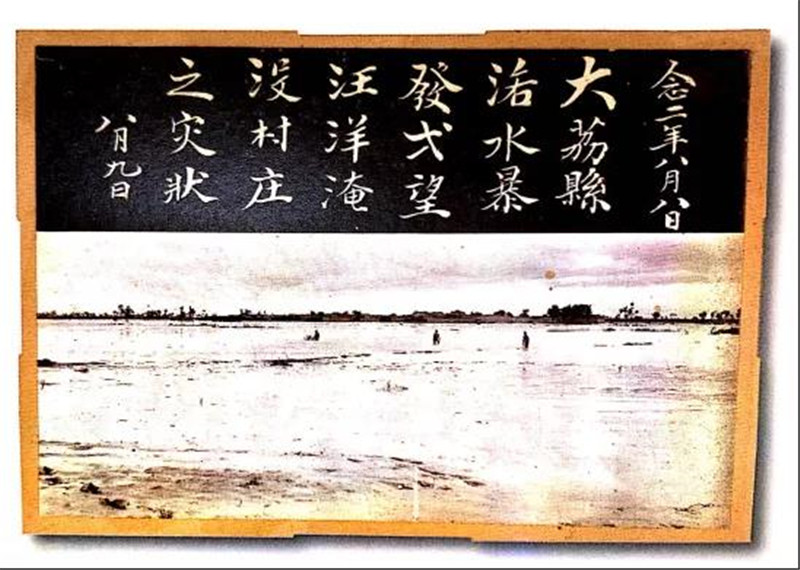 念二年八月八日
大荔縣
洛水暴
發弌望
汪洋淹
没村庄
之灾狀
八月九日